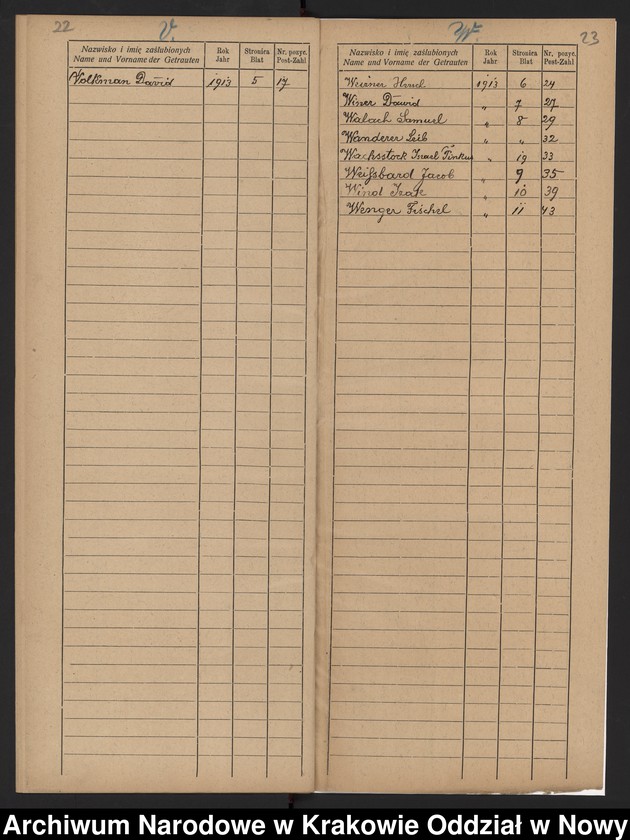 22
V.
Nazwisko i imię zaślubionych
Name und Vorname der Getrauten
Rok
Jahr
Stronica
Blat
Nr. pozyc.
Post-Zahl
Volkman David 1913 5 17
W.
23
Nazwisko i imię zaślubionych
Name und Vorname der Getrauten
Rok
Jahr
Stronica
Blat
Nr. pozyc.
Post-Zahl
1913 6 24
Winer Dawid „ 7 27
Walach Samuel „ 8 29
Wanderer Leib „ „ 32
Wachsstock Israel Pinkus „ 19 33
Weißbard Jacob „ 9 35
Wind Izak „ 10 39
Wenger Fischel „ 11 43
Archiwum Narodowe w Krakowie Oddział w Nowy